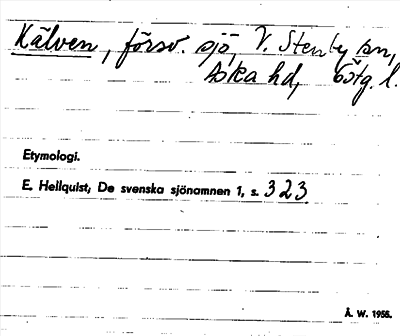 Kälven, försv. sjö, V. Stenby sn,
Aska hd, Östg. l.
Etymologi.
E. Hellquist, De svenska sjönamnen 1, s. 323
Å. W. 1955.